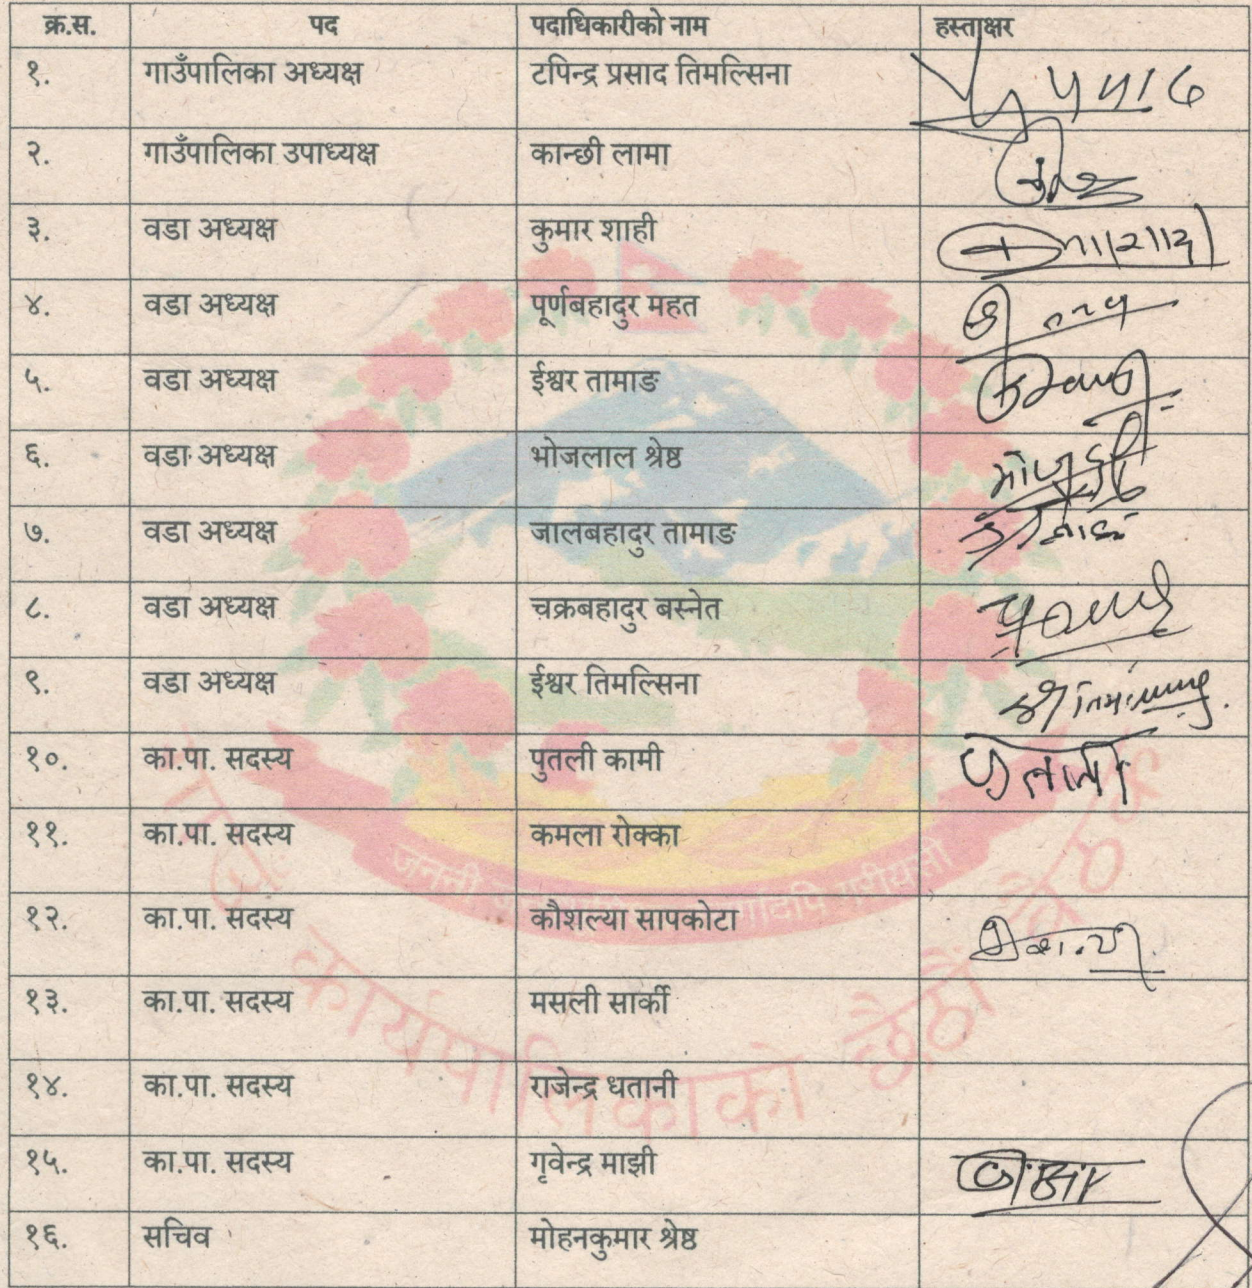 क्र.स. पद पदाधिकारीको नाम हस्ताक्षर
१. गाउँपालिका अध्यक्ष टपिन्द्र प्रसाद तिमल्सिना
२. गाउँपालिका उपाध्यक्ष कान्छी लामा
३. वडा अध्यक्ष कुमार शाही
४. वडा अध्यक्ष पूर्णबहादुर महत
५. वडा अध्यक्ष ईश्वर तामाङ
६. वडा अध्यक्ष भोजलाल श्रेष्ठ
७. वडा अध्यक्ष जालबहादुर तामाङ
८. वडा अध्यक्ष चक्रबहादुर बस्नेत
९. वडा अध्यक्ष ईश्वर तिमल्सिना
१०. का.पा. सदस्य पुतली कामी
११. का.पा. सदस्य कमला रोक्का
१२. का.पा. सदस्य कौशल्या सापकोटा
१३. का.पा. सदस्य मसली सार्की
१४. का.पा. सदस्य राजेन्द्र धतानी
१५. का.पा. सदस्य गृवेन्द्र माझी
१६. सचिव मोहनकुमार श्रेष्ठ
जननी गरीयसी
कार्यपालिकाको छैठौं बैठक